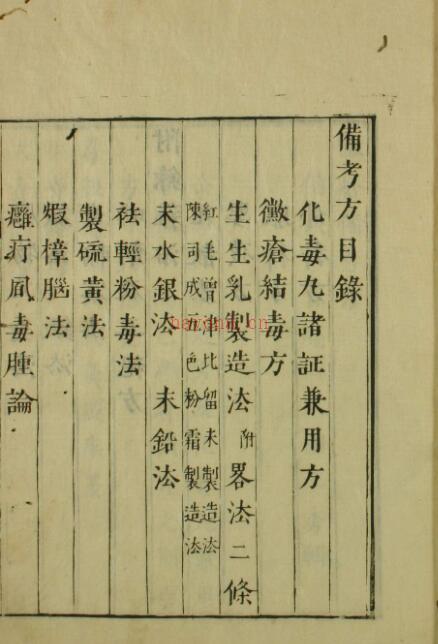 備考方目錄
化毒丸諸証兼用方
黴瘡結毒方
生生乳製造法 附畧法二條
紅毛曾津比留末製造法
陳司成五色粉霜製造法
末水銀法 末鉛法
祛輕粉毒法
製硫黃法
煆樟腦法
癰疔風毒腫論